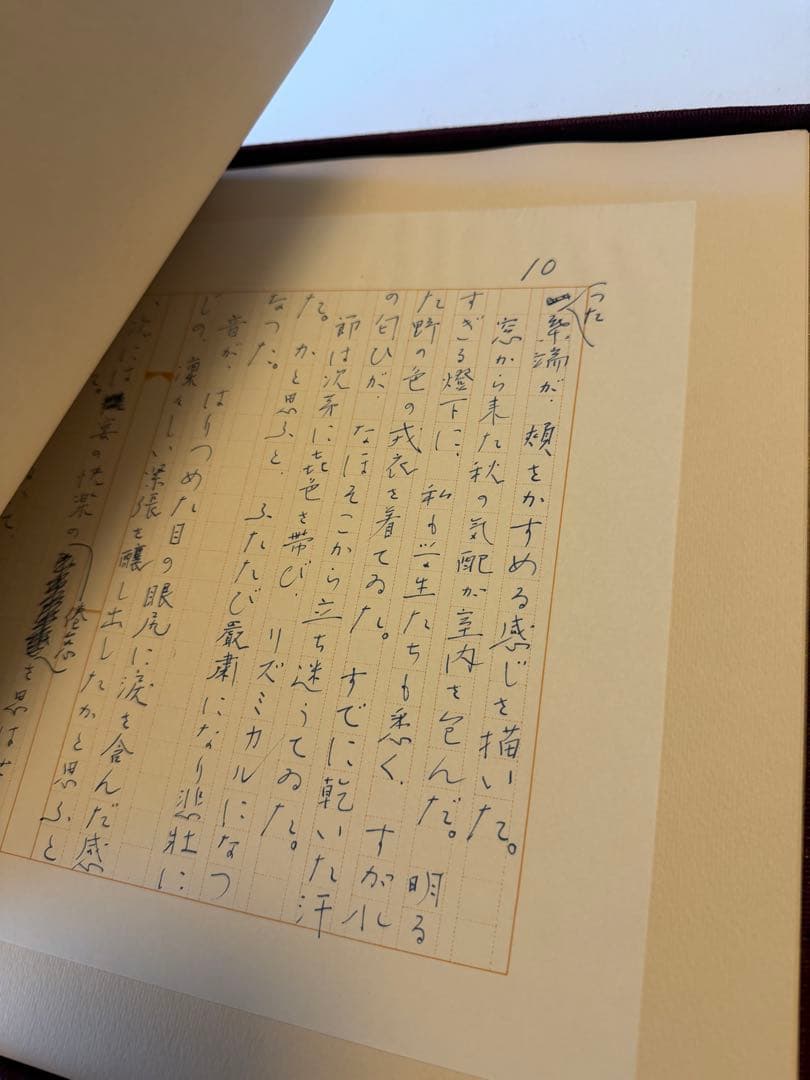 10
った
端が、頬をかすめる感じを描いた。
窓から来た秋の気配が室内を包んだ。明る
すぎる燈下に、私も学生たちも悉く、すがれ
た野の色の戎衣を着てゐた。すでに乾いた汗
の匂ひが、なほそこから立ち迷うてゐた。
節は次第に喜色を帯び、リズミカルになつ
た。かと思ふと、ふたたび嚴粛になり悲壮に
なつた。
音が、はりつめた目の眼尻に涙を含んだ感
じの、凜々しい緊張を醸し出したかと思ふと
次には宴の快楽の倦怠を思はせ